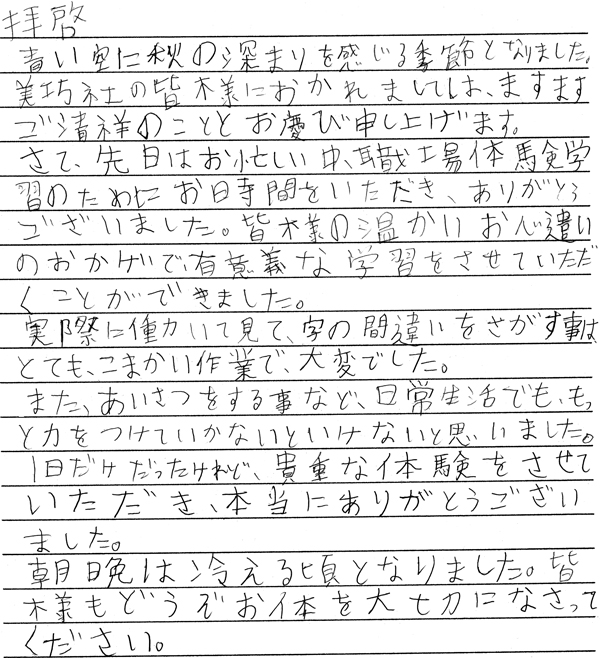 拝啓
青い空に秋の深まりを感じる季節となりました。
美巧社の皆様におかれましては、ますます
ご清祥のこととお慶び申し上げます。
さて、先日はお忙しい中、職場体験学
習のためにお時間をいただき、ありがとう
ございました。皆様の温かいお心遣い
のおかげで、有意義な学習をさせていただ
くことができました。
実際に働いて見て、字の間違いをさがす事は
とても、こまかい作業で、大変でした。
また、あいさつをする事など、日常生活でも、もっ
と力をつけていかないといけないと思いました。
1日だけだったけれど、貴重な体験をさせて
いただき、本当にありがとうござい
ました。
朝晩は冷える頃となりました。皆
様もどうぞお体を大切になさって
ください。